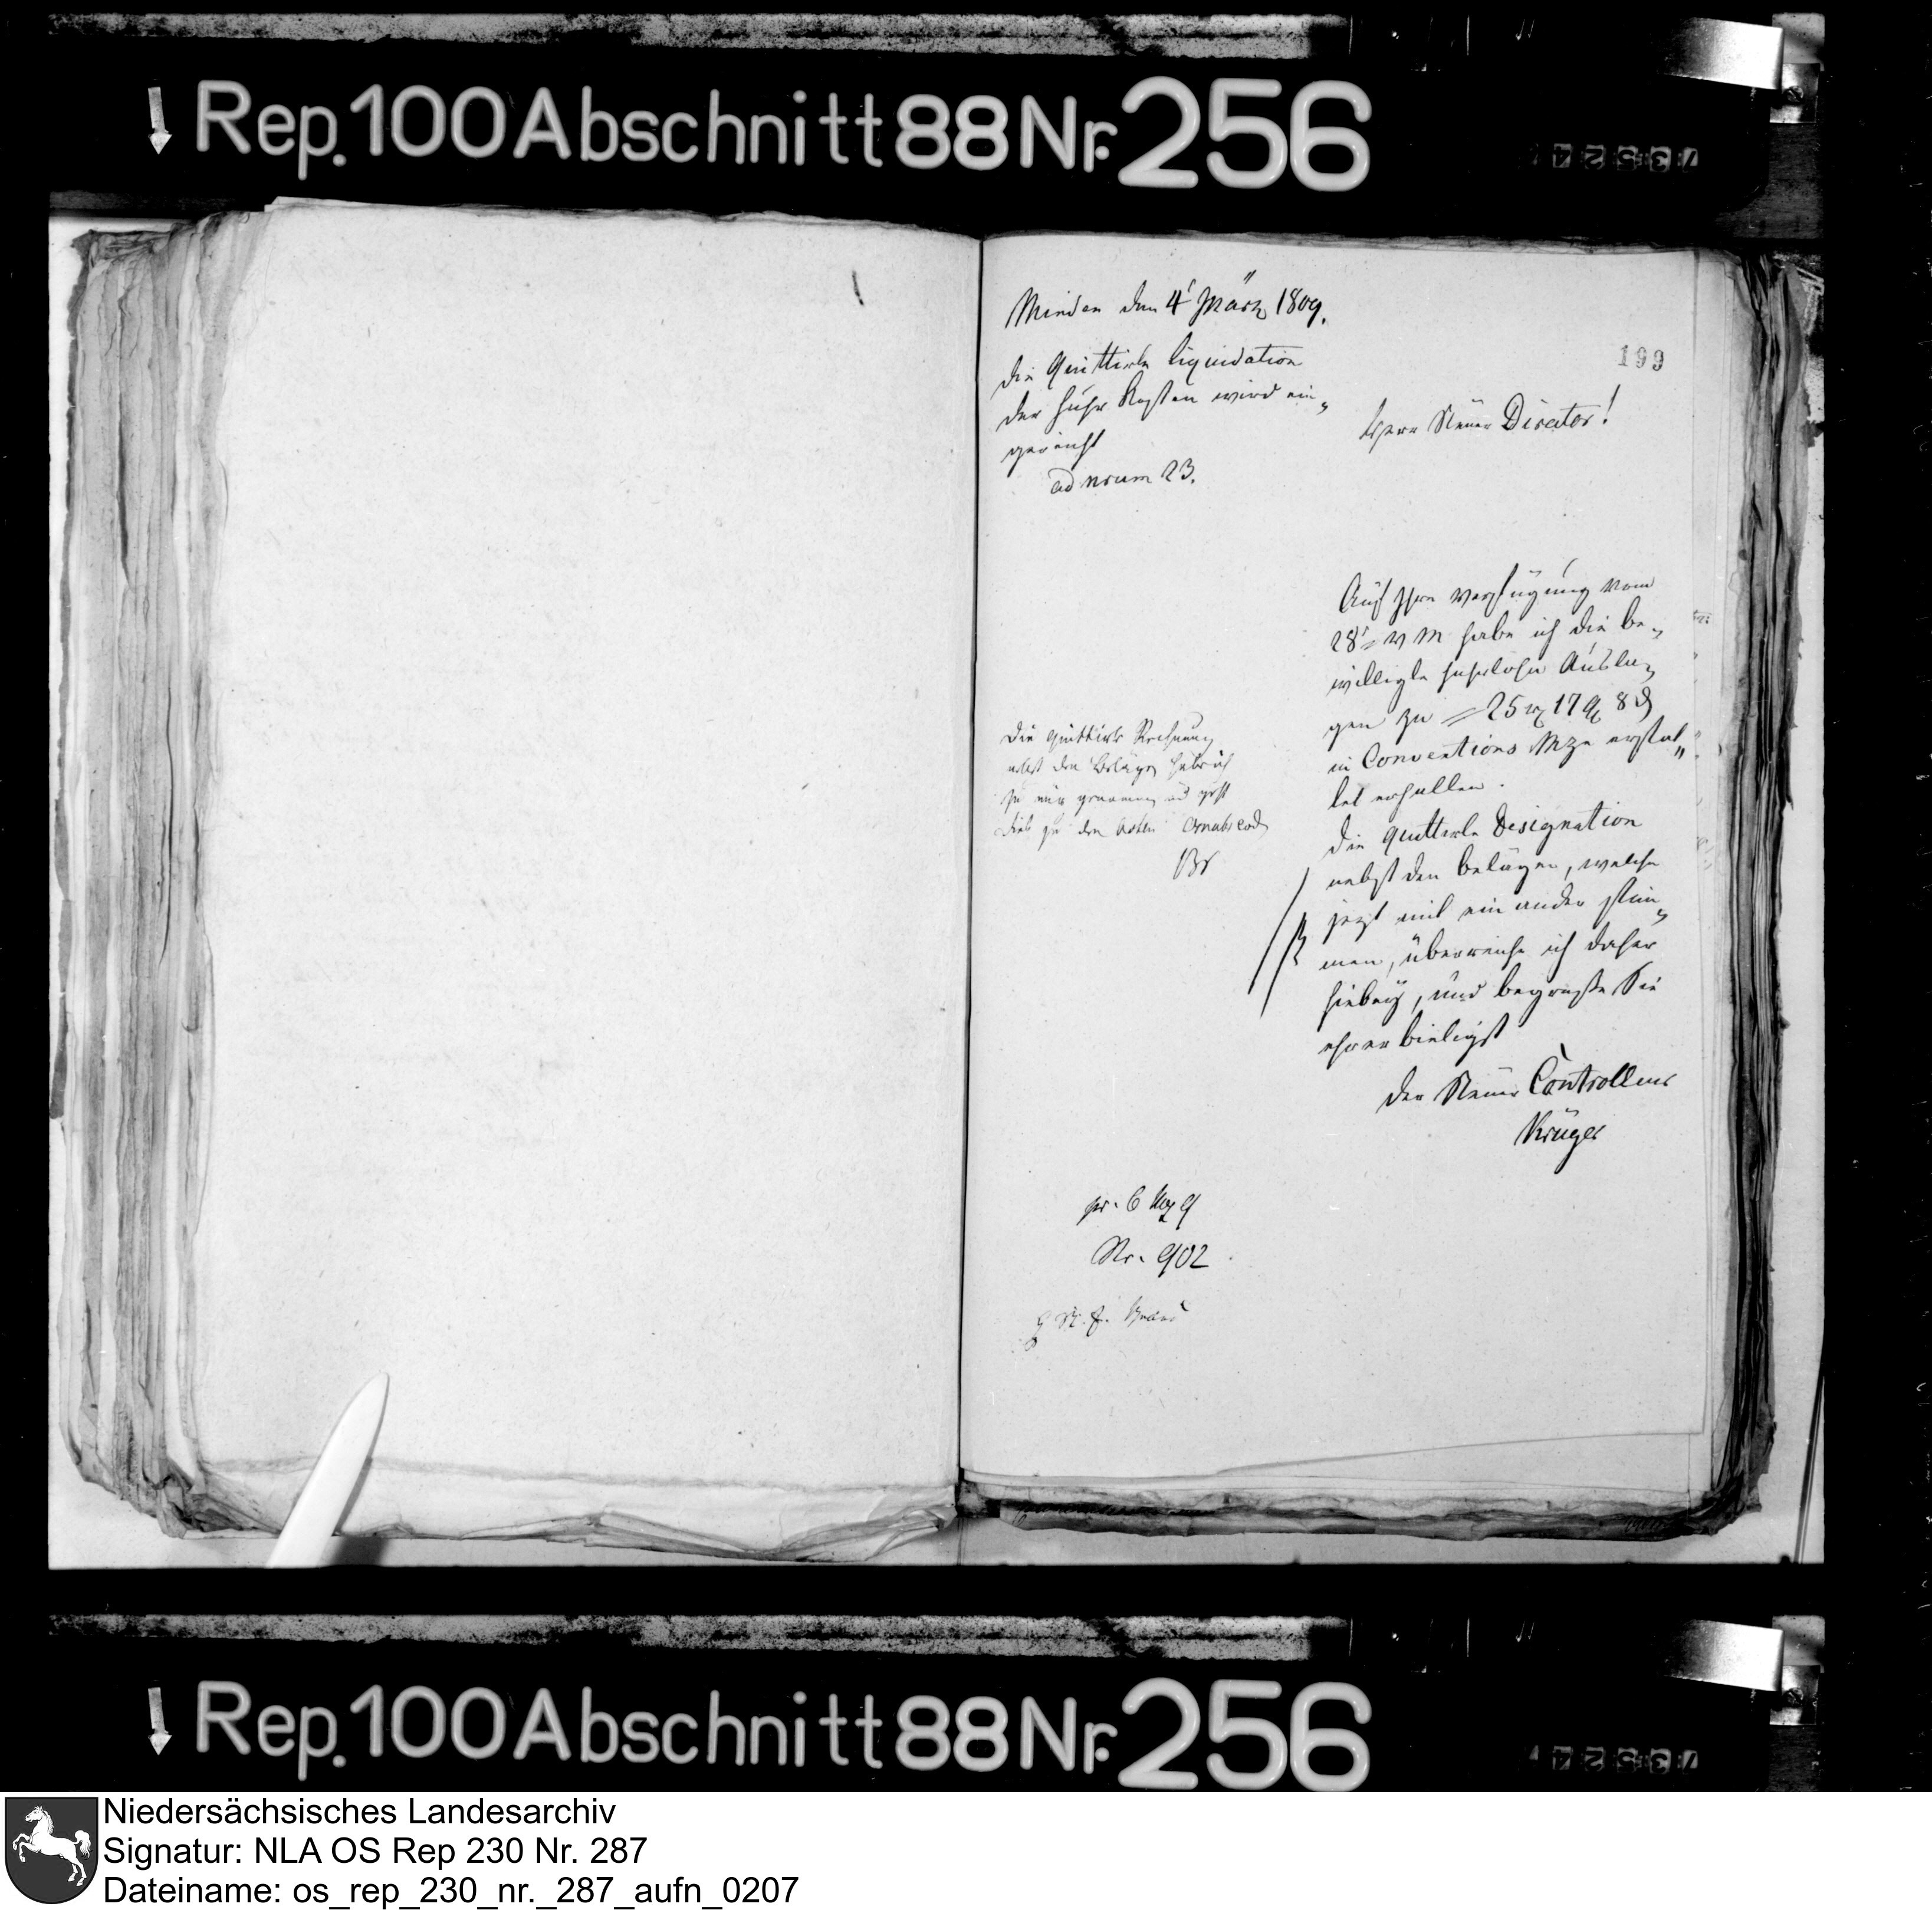 Rep. 100 Abschnitt 88 Nr. 256
73524
Minden den 4t März 1809.
die Quittirte liquidation
der Fuhr Kosten wird ein„
gereicht
ad nrum 23.
199
Herr Steuer Director!
Auf Ihre Verfügung vom
28t v M habe ich die be„
willigte Fuhrlohn Ausla„
gen zu = 25 17 8
in Conventions Mze erstat„
tet erhalten.
die quittirte Designation
nebst den belägen, welche
jezt mit ein ander stim„
men, überreiche ich daher
hiebey, und begrüße Sie
ehrerbietigst
der Steuer Controlleur
Krüger
Die quittirte Rechnung
nebst den Belägen habe ich
zu mir genommen und geht
dies zu den Acten
Br
pr. 6 Mrz 9
Nr. 902
Rep. 100 Abschnitt 88 Nr. 256
73524
Niedersächsisches Landesarchiv
Signatur: NLA OS Rep 230 Nr. 287
Dateiname: os_rep_230_nr._287_aufn_0207